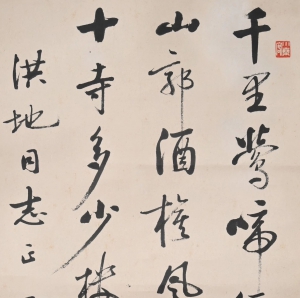 千里莺啼
山郭酒旗风
十寺多少楼
洪地同志正